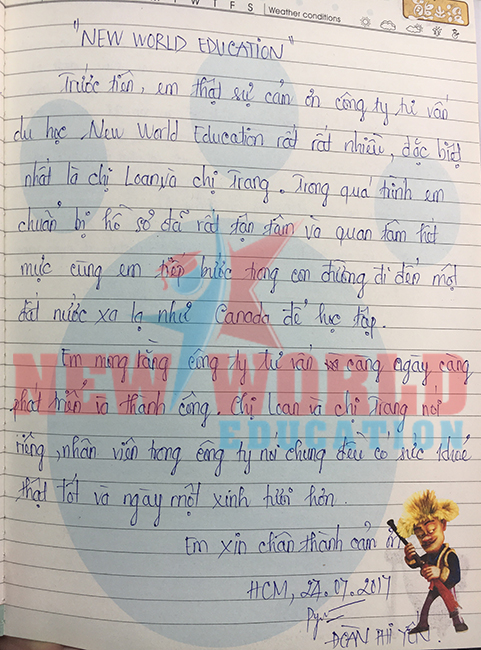 W T F S | Weather conditions
"NEW WORLD EDUCATION"
Trước tiên, em thật sự cảm ơn công ty tư vấn
du học New World Education rất rất nhiều, đặc biệt
nhất là chị Loan và chị Trang. Trong quá trình em
chuẩn bị hồ sơ đã rất tận tâm và quan tâm hết
mực cùng em tiếp bước trong con đường đi đến một
đất nước xa lạ như Canada để học tập.
Em mong rằng công ty tư vấn càng ngày càng
phát triển và thành công. Chị Loan và chị Trang nói
riêng, nhân viên trong công ty nói chung đều có sức khoẻ
thật tốt và ngày một xinh tươi hơn.
Em xin chân thành cảm ơn
HCM, 27.07.2017
ĐOÀN PHI YẾN.
NEW WORLD
EDUCATION